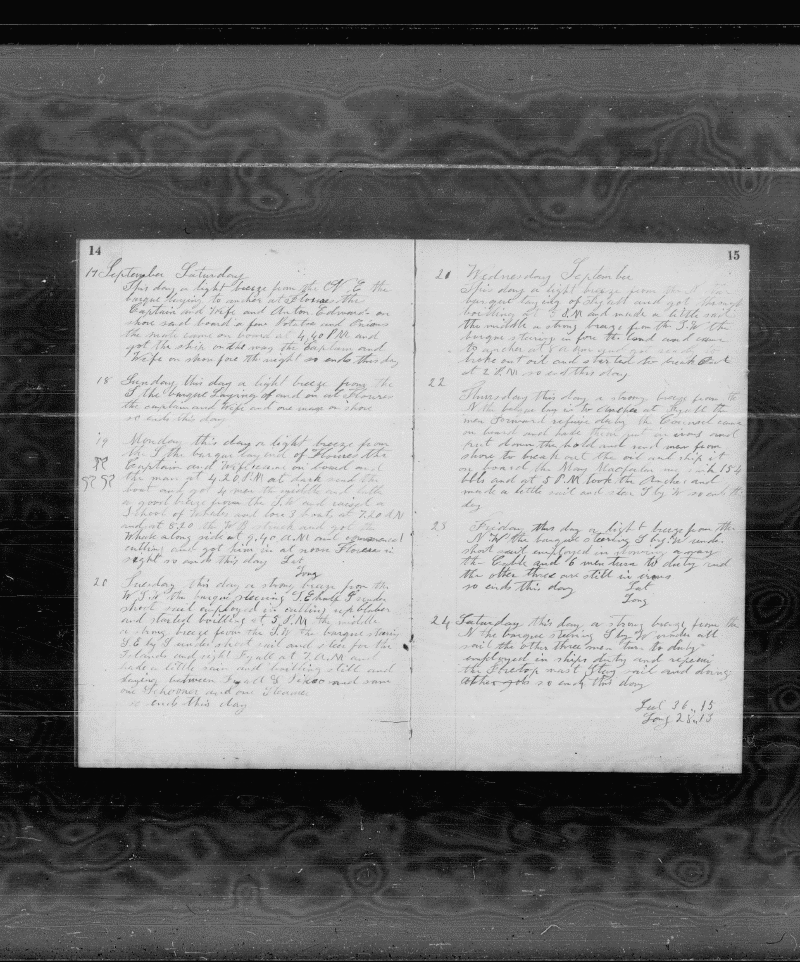 14
17 September Saturday
This day a light breeze from the N E the
barque laying to anchor at Flowres the
Captain and Wife and Anton Edwards on
shore said board a few Potatoes and Onions
the mate came on board at 4,40 P M and
got the ship on the way the Captain and
Wife on shore for the night so ends this day
18 Sunday this day a light breeze from the
S the barque Laying of and on at Flowres
the captain and Wife and one man on shore
so ends this day
19 Monday this day a light breeze from
the S the barque lay end of Flowres the
Captain and Wife came on board and
the man at 4.20 P.M at dark send the
boat and got 4 men the middle and latter
a good breeze from the S.W and raised a
School of Whales and lore 3 boats at 7.20 A M
and at 8.20 the W B struck and got the
Whale along side at 9.40 A.M and commenced
cutting and got him in at noon Flowres in
sight so ends this day Lat
Long
20 Tuesday this day a strong breeze from the
W.S.W the barque steering S.E half S under
short sail employed in cutting up blubber
and started boilling at 5 P.M the middle
a strong breeze from the S.W the barque steering
S E by S under short sail and steer for the
Islands and sight Fyall at 7. A.M and
made a little sail and boilling still and
laying between Fyall & Picco and saw
one Schooner and one
so ends this day
15
21 Wednesday September
This day a light breeze from the
barque laying of Fyall and got through
boilling at P.M and made a little sail
the middle a strong breeze from the S.W the
barque steering in for the land and came
to anchor at 8 A M
broke out oil and started to break out
at 2 P.M so ends this day
22
Thursday this day a strong breeze from the
N the barque lay in to Anchor at Fyall the
men Forward refuse duty the Counsel came
on board and had them put in irons and
put down the hold and send men from
shore to break out the oil and ship it
on board the May Macfarlen 154
bbls and at 5 P.M took the Anchor and
made a little sail and steer S by W so ends the
day
23 Friday this day a light breeze from the
N W the barque steering S by W under
short sail employed in stowing away
the Cable and 6 men turn to duty and
the other three are still in irons
so ends this day Lat
Long
24 Saturday this day a strong breeze from the
N the barque stering S by W under all
sail the other three men turn to duty
employed in ships duty and repairing
the foretop mast Stay sail and doing
other jobs so ends this day
Lat 36,,15
Long 28,,13